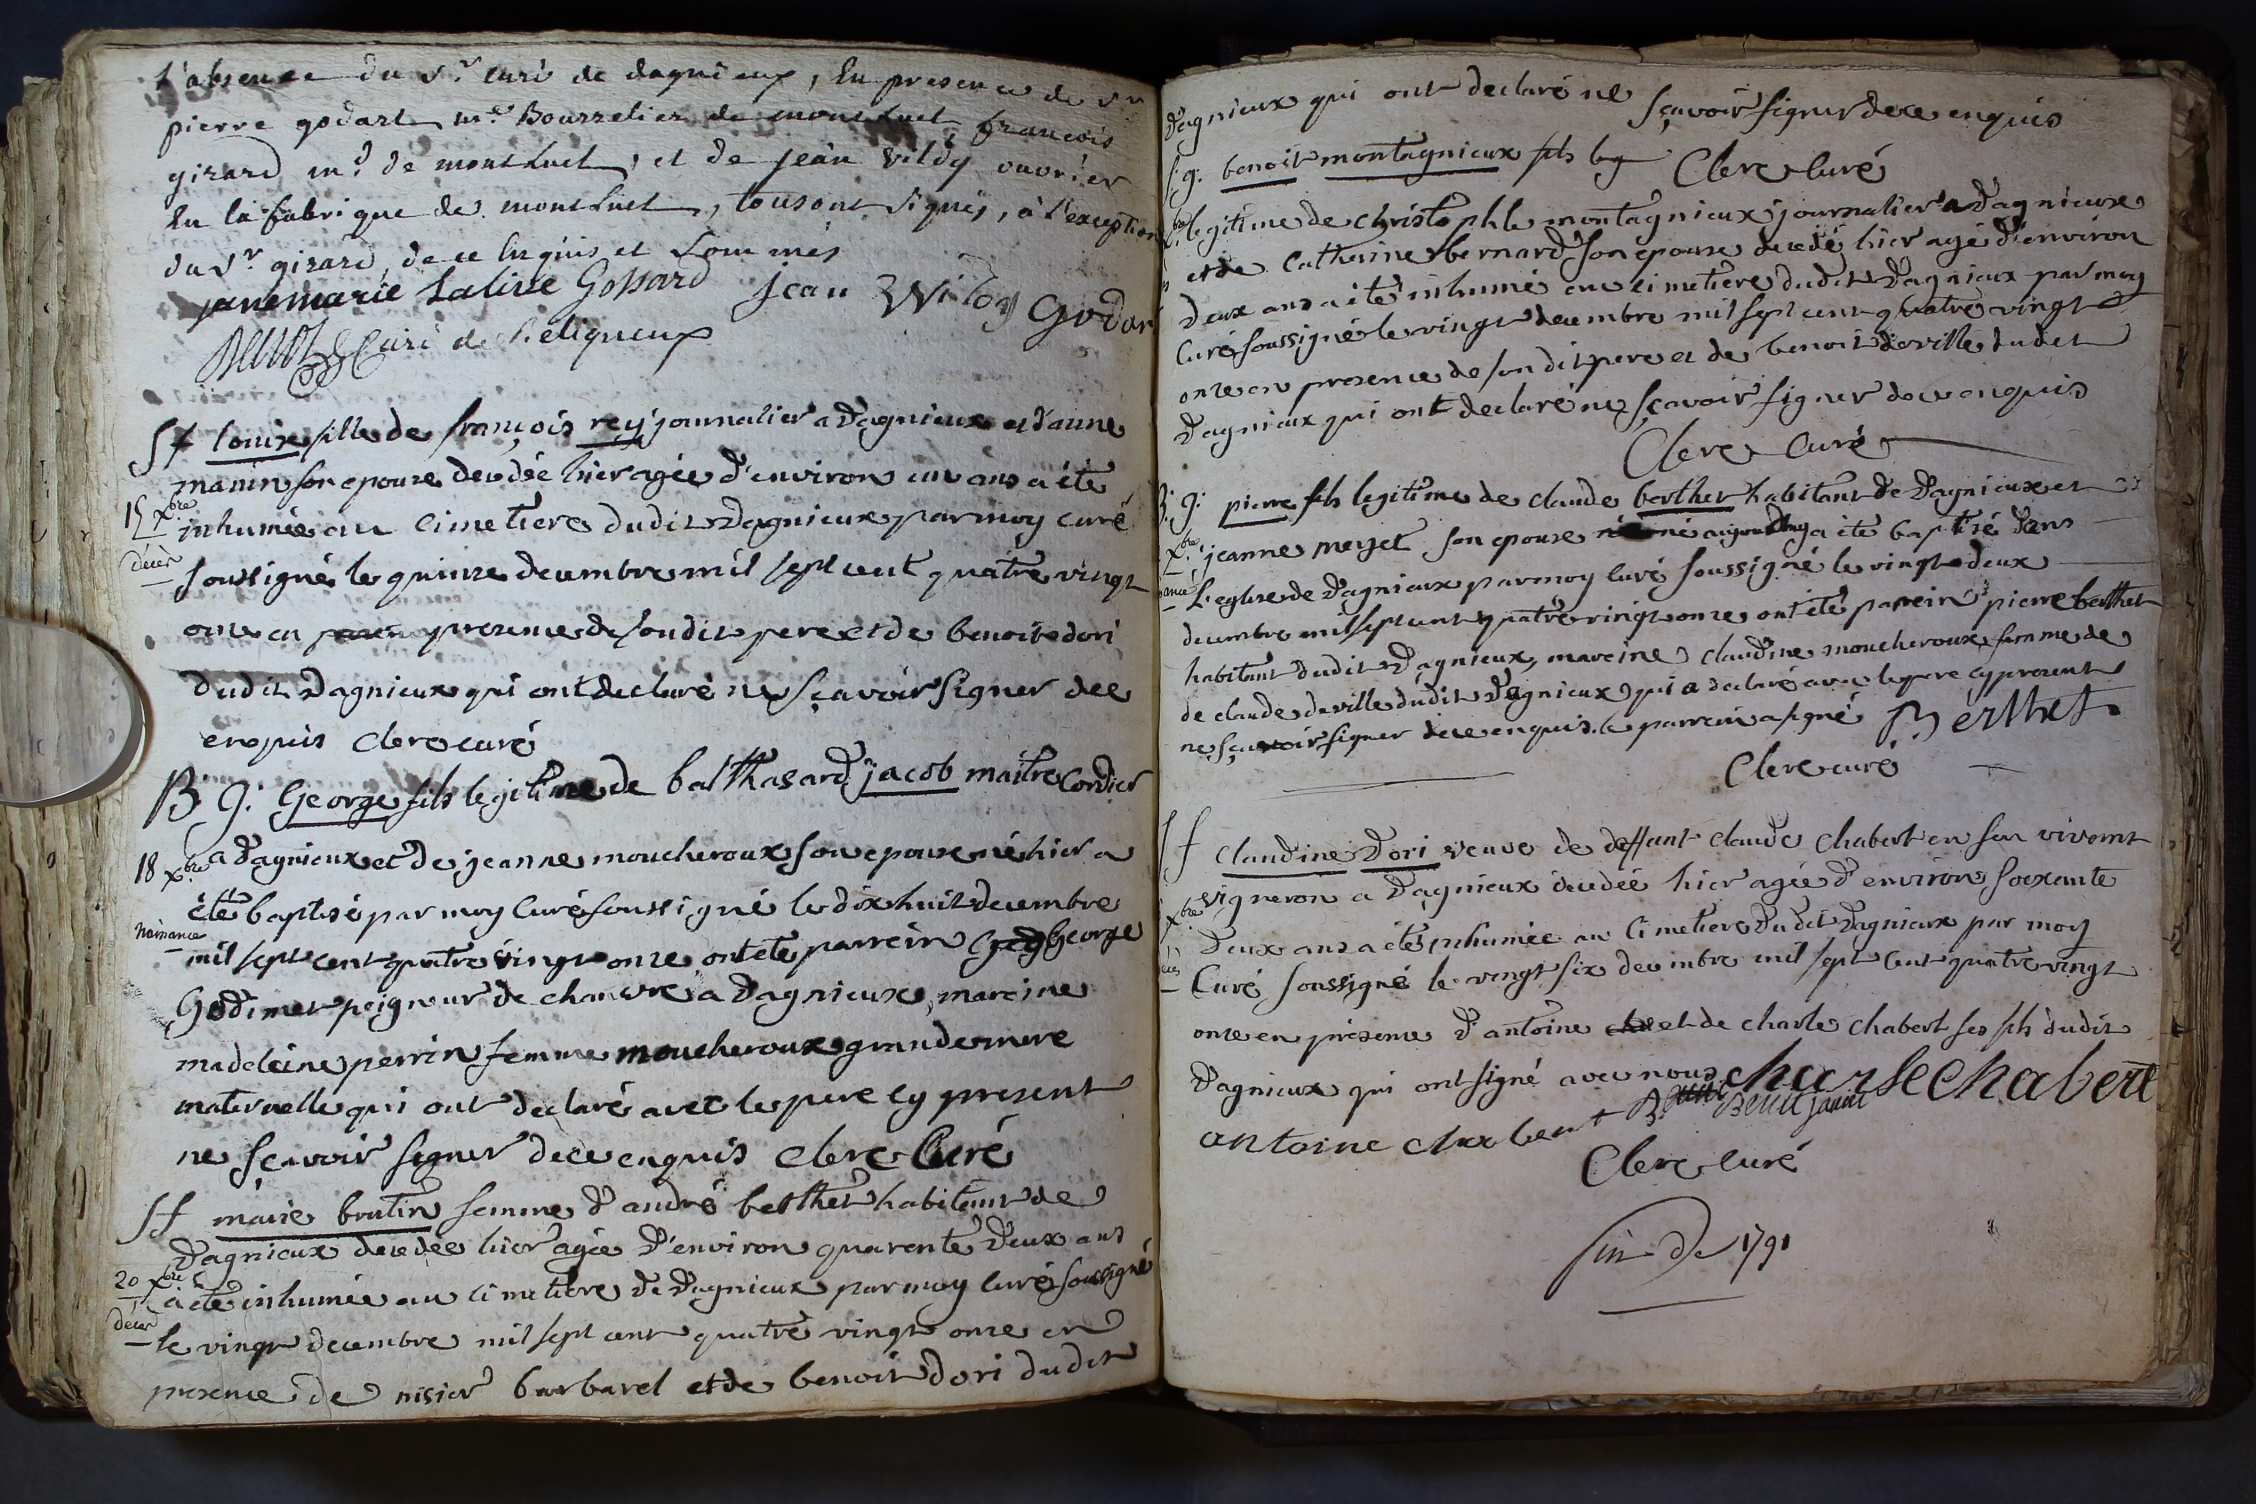 l'absence du Sr curé de dagnieux, En presence de Sr
pierre godart md Bourrelier de montluel, francois
girard md de montluel, et de jean vildy ouvrier
En la fabrique de montluel, tous ont signés, à l'exception
du Sr girard, de ce Enquis et Sommés
janemarie Goffard jean Wildy Godar
Curé de Beligneux
Sf louise fille de françois rey journalier a Dagnieux et d'anne
manin son epouse decedée hier agée d'environ un ans a été
15 Xbre inhumée au cimetiere dudit Dagnieux par moy curé
Décès soussigné le quinze decembre mil sept cent quatre vingt
onze en presence de son dit pere et de benoit dori
dudit Dagnieux qui ont declaré ne sçavoir signer de ce
enquis Clerc curé
B g: George fils legitime de balthasard jacob maitre Cordier
18 Xbre a Dagnieux et de jeanne moucheroux son epouse né hier a
été baptisé par moy Curé soussigné le dix huit decembre
Naissance mil sept cent quatre vingt onze ont été parrein George
Godimet peigneur de chanvre a Dagnieux, mareine
madeleine perrin femme moucheroux grande mere
maternelle qui ont declaré avec le pere cy present
ne sçavoir signer de ce enquis Clerc Curé
Sf marie brutin femme d'andré berthet habitant de
Dagnieux decedée hier agée d'environ quarente deux ans
20 Xbre a été inhumée au cimetiere de Dagnieux par moy Curé soussigné
Décès le vingt decembre mil sept cent quatre vingt onze en
presence de nisier barbaret et de benoit Dori dudit
Dagnieux qui ont declaré ne sçavoir signer de ce enquis
Clerc Curé
S g. benoit montagnieux fils leg
legitime de christophle montagnieux journalier a Dagnieux
et de Catherine bernard son epouse decedé hier agé d'environ
deux ans a été inhumé au cimetiere dudit Dagnieux par moy
Curé soussigné le vingt decembre mil sept cent quatre vingt
onze en presence de son dit pere et de benoit deville dudit
Dagnieux qui ont declaré ne sçavoir signer de ce enquis
Clerc Curé
B. g: pierre fils legitime de claude berthet habitant de Dagnieux et
Xbre jeanne meyet son epouse né aujourd'huy a été baptisé dans
L'eglise de Dagnieux par moy Curé soussigné le vingt deux
decembre mil sept cent quatre vingt onze ont été parrein pierre berthet
habitant dudit Dagnieux, mareine claudine moucheroux femme de
de claude deville dudit Dagnieux qui a declaré avec le pere cy present
ne sçavoir signer de ce enquis. le parrein a signé Berthet
Clerc curé
Sf Claudine Dori veuve de deffunt claude Chabert en son vivant
Xbre vigneron a Dagnieux decedée hier agée d'environ soixante
deux ans a été inhumée au Cimetiere Dudit Dagnieux par moy
Curé soussigné le vingt six decembre mil sept cent quatre vingt
onze en presence d'antoine et de charle chabert ses fils dudit
Dagnieux qui ont signé avec nous charle Chabert
antoine chabert
Clerc Curé
fin De 1791